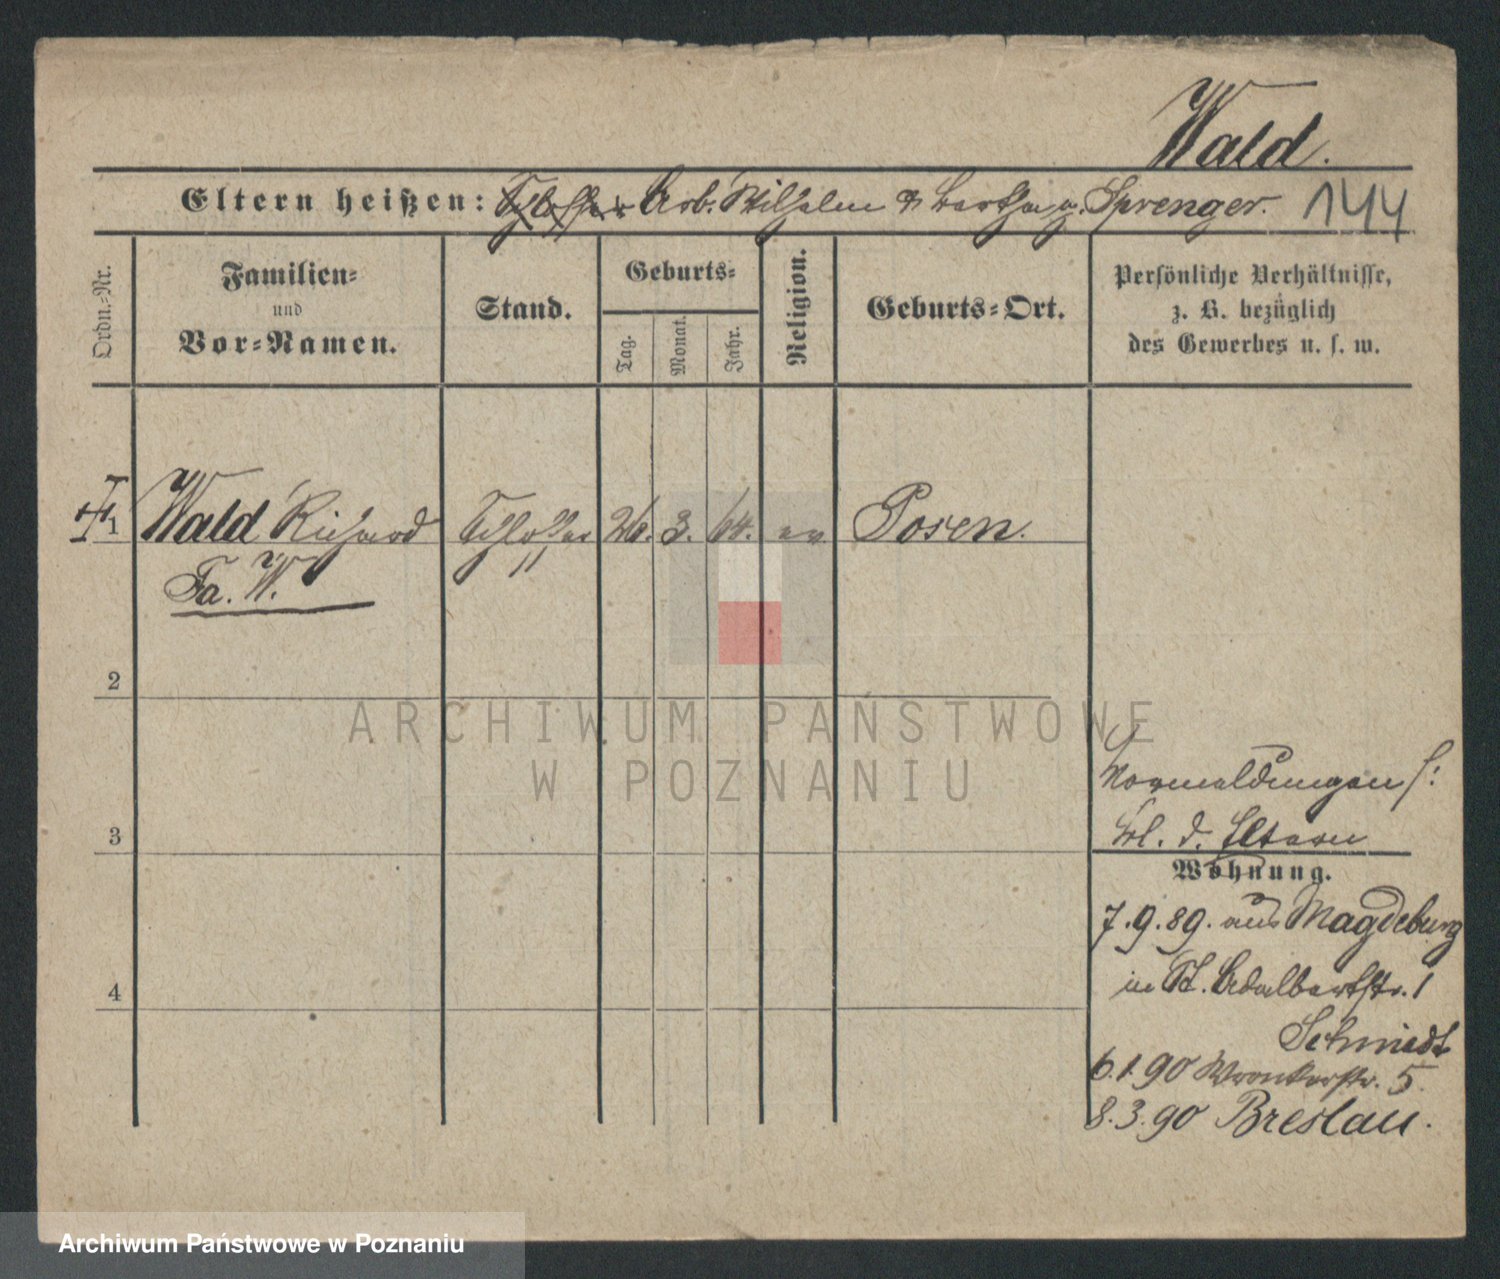 Wald.
Eltern heißen: Schlosser Arb. Wilhelm & Bertha g. Sprenger. 144
Ordn.-Nr.
Familien-
und
Vor-Namen.
Stand.
Geburts-
Tag.
Monat.
Jahr.
Religion.
Geburts-Ort.
Persönliche Verhältnisse,
z. B. bezüglich
des Gewerbes u. s. w.
1 Wald Richard Schlosser 26. 3. 64. ev Posen.
Fa. W.
2
3
4
ARCHIWUM PAŃSTWOWE
W POZNANIU
Vormeldungen s:
bl. d. Eltern
Wohnung.
7.9.89. aus Magdeburg
in St. Adalbertstr. 1
Schmidt
6.1.90 Wronkerstr. 5
8.3.90 Breslau.
Archiwum Państwowe w Poznaniu